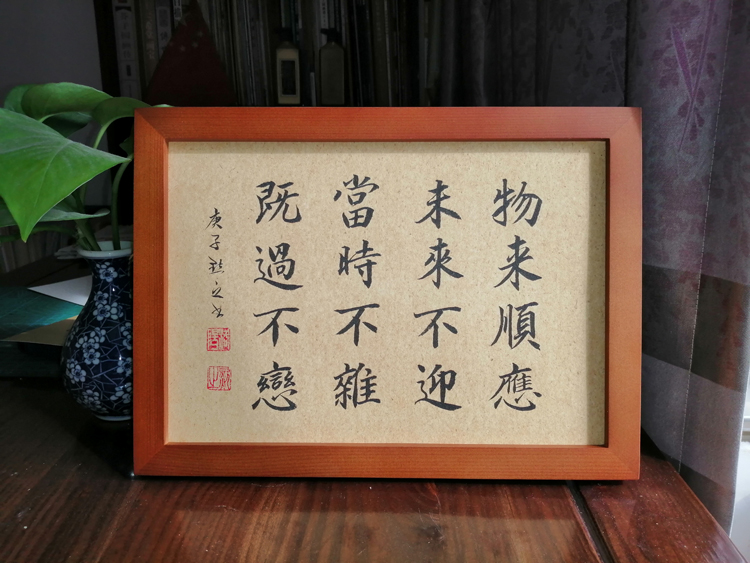 物来順應
未來不迎
當時不雜
既過不戀
庚子懿之书